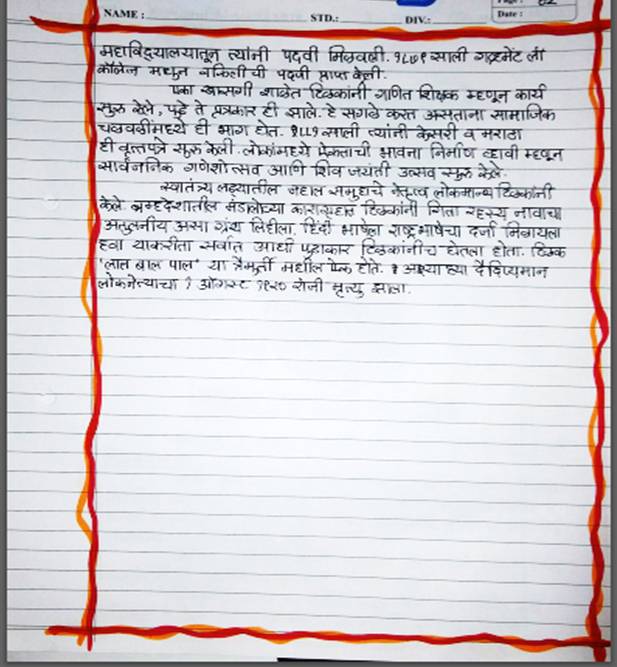 NAME : STD.: DIV.: Page : 02
Date :
महाविद्यालयातून त्यांनी पदवी मिळवली. १८७९ साली गव्हर्मेंट लॉ
कॉलेज मधून वकिलीची पदवी प्राप्त केली.
एका खासगी शाळेत टिळकांनी गणित शिक्षक म्हणून कार्य
सुरु केले, पुढे ते पत्रकार ही झाले. हे सगळे करत असताना सामाजिक
चळवळींमध्ये ही भाग घेत. १८८१ साली त्यांनी केसरी व मराठा
ही वृत्तपत्रे सुरु केली. लोकांमध्ये ऐकताची भावना निर्माण व्हावी म्हणून
सार्वजननिक गणेशोत्सव आणि शिव जयंती उत्सव सुरु केले.
स्वातंत्र्य लढ्यातील जहाल समुहाचे नेतृत्व लोकमान्य टिळकांनी
केले. ब्रम्हदेशातील मंडालेच्या कारागृहात टिळकांनी गिता रहस्य नावाचा
अतुलनीय असा ग्रंथ लिहीला. हिंदी भाषेला राष्ट्रभाषेचा दर्जा मिळायला
हवा याकरीता सर्वात आधी पुढाकार टिळकांनीच घेतला होता. टिळक
'लाल बाल पाल' या त्रैमुर्ती मधील एक होते. अश्या ह्या दैदिप्यमान
लोकनेत्याचा १ ऑगस्ट १९२० रोजी मृत्यु झाला.